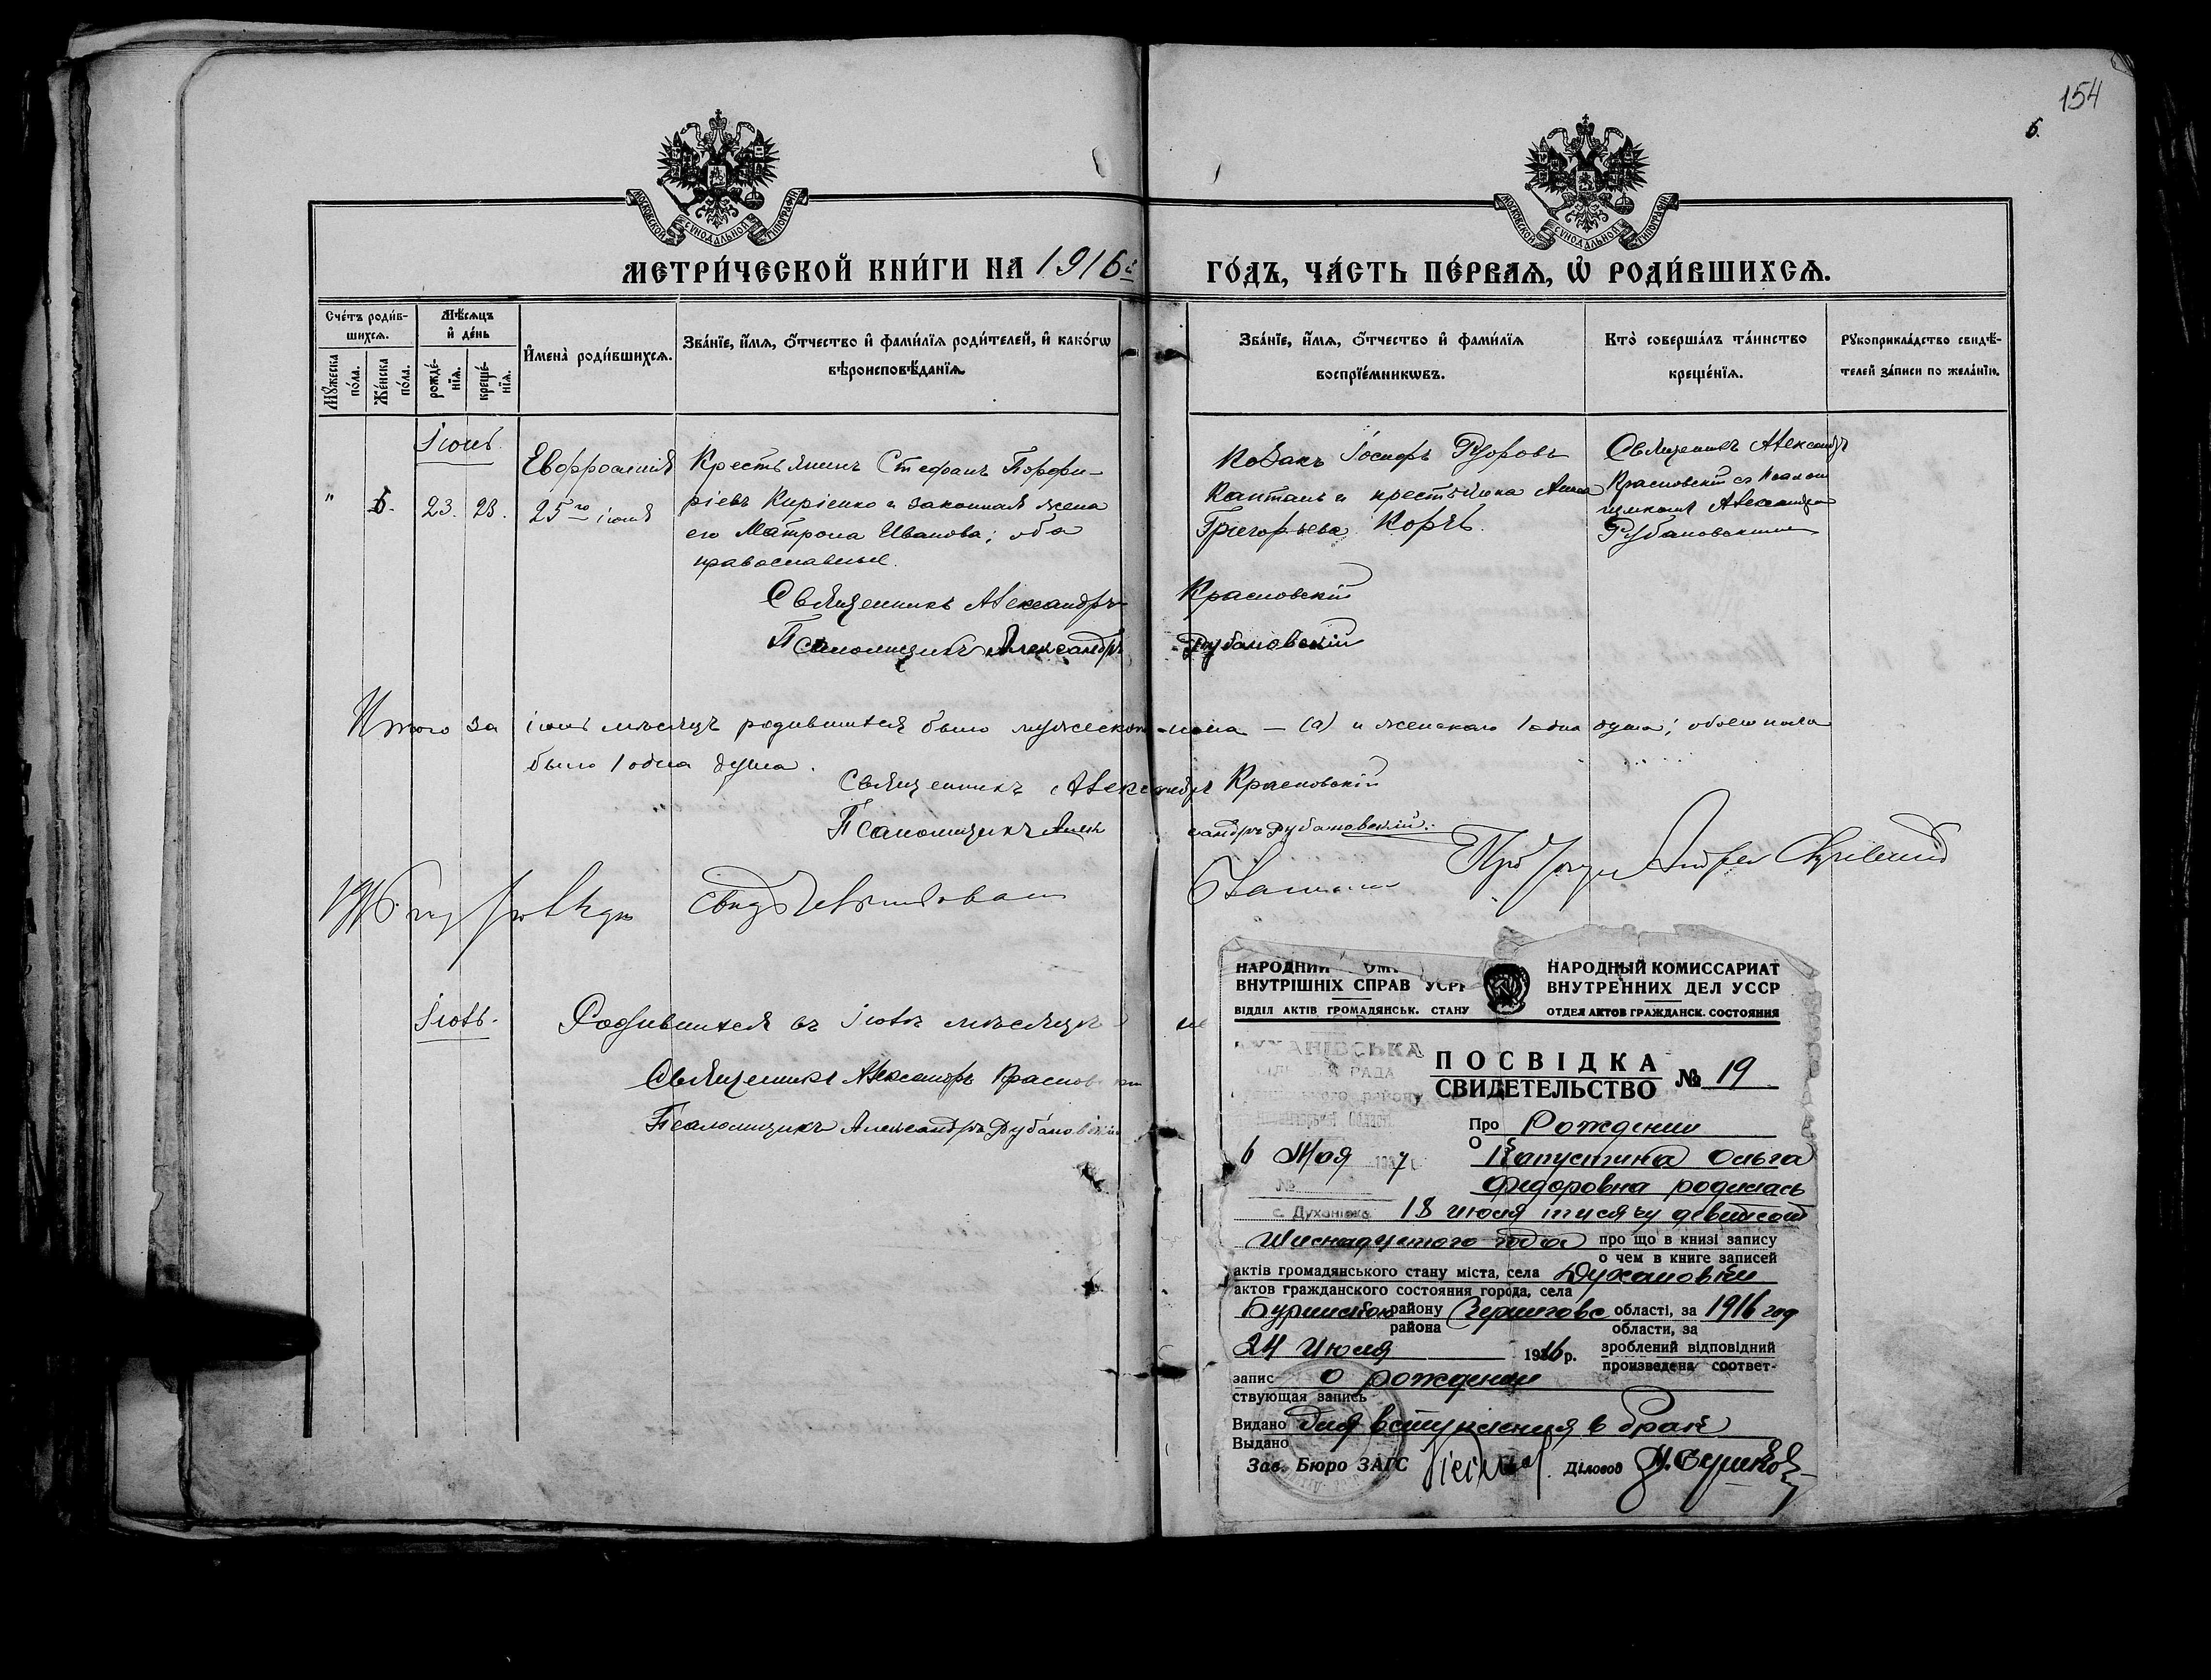 154
6.
МОСКОВСКОЙ СѴНОДАЛЬНОЙ ТИПОГРАФІИ
МОСКОВСКОЙ СѴНОДАЛЬНОЙ ТИПОГРАФІИ
МЕТРИ́ЧЕСКОЙ КНИ́ГИ НА 1916й ГО́ДЪ, ЧА́СТЬ ПЕ́РВАѦ, Ѡ҆ РОДИ́ВШИХСѦ.
Сче́тъ роди́в-
шихсѧ.
Мꙋ́жеска по́ла.
Же́нска по́ла.
Мѣ́сѧцъ
и҆ де́нь
рожде́-
нїѧ.
креще́-
нїѧ.
И҆мена̀ роди́вшихсѧ.
Зва́нїе, и҆́мѧ, ѻ҆́тчество и҆ фами́лїѧ роди́телей, и҆ како́гѡ
вѣроисповѣ́данїѧ.
Зва́нїе, и҆́мѧ, ѻ҆́тчество и҆ фами́лїѧ
воспрїе́мникѡвъ.
Кто̀ соверша́лъ та́инство
креще́нїѧ.
Рꙋкоприкла́дство свидѣ́-
телей за́писи по жела́нїю.
Іюнь.
" 6. 23. 28.
Евфросинія
25го іюня
Крестьянинъ Стефанъ Порфи-
ріевъ Киріенко и законная жена
его Матрона Иванова; оба
православные.
Козакъ Іосифъ
и крестьянка Анна
Григорьева Коржъ.
Священникъ Александръ
Красновскій съ псалом
щикомъ Александромъ
Рубановскимъ
Священникъ Александръ Красновскій
Псаломщикъ Александръ Рубановскій
Итого за іюнь мѣсяцъ родившихся было мужескаго пола — (0) и женскаго 1 одна душа; обоего пола
было 1 одна душа.
Священникъ Александръ Красновскій
Псаломщикъ Александръ Рубановскій.
1916 свидѣтельствовалъ
Іюль.
Родившихся въ іюлѣ мѣсяцѣ не
Священникъ Александръ Красновскій
Псаломщикъ Александръ Рубановскій
НАРОДНИЙ КОМ
ВНУТРІШНІХ СПРАВ УСРР
ВІДДІЛ АКТІВ ГРОМАДЯНСЬК. СТАНУ
НАРОДНЫЙ КОМИССАРИАТ
ВНУТРЕННИХ ДЕЛ УССР
ОТДЕЛ АКТОВ ГРАЖДАНСК. СОСТОЯНИЯ
ДУХАНІВСЬКА
РАДА
району
Області
ПОСВІДКА
СВИДЕТЕЛЬСТВО № 19
Про
О Рождении
6 Мая 1937
Капустина Ольга
Федоровна родилась
№
с. Духанівка 18 июля тисячу девятсот
Шиснадцятого года про що в книзі запису
о чем в книге записей
актів громадянського стану міста, села Духановки
актов гражданского состояния города, села
Буринског району Черниговс області, за 1916 год
района области, за
24 Июля 1916 р. зроблений відповідний
произведена соответ-
запис о рождении
ствующая запись
Видано Для вступления в брак
Выдано
Зав. Бюро ЗАГС Діловод